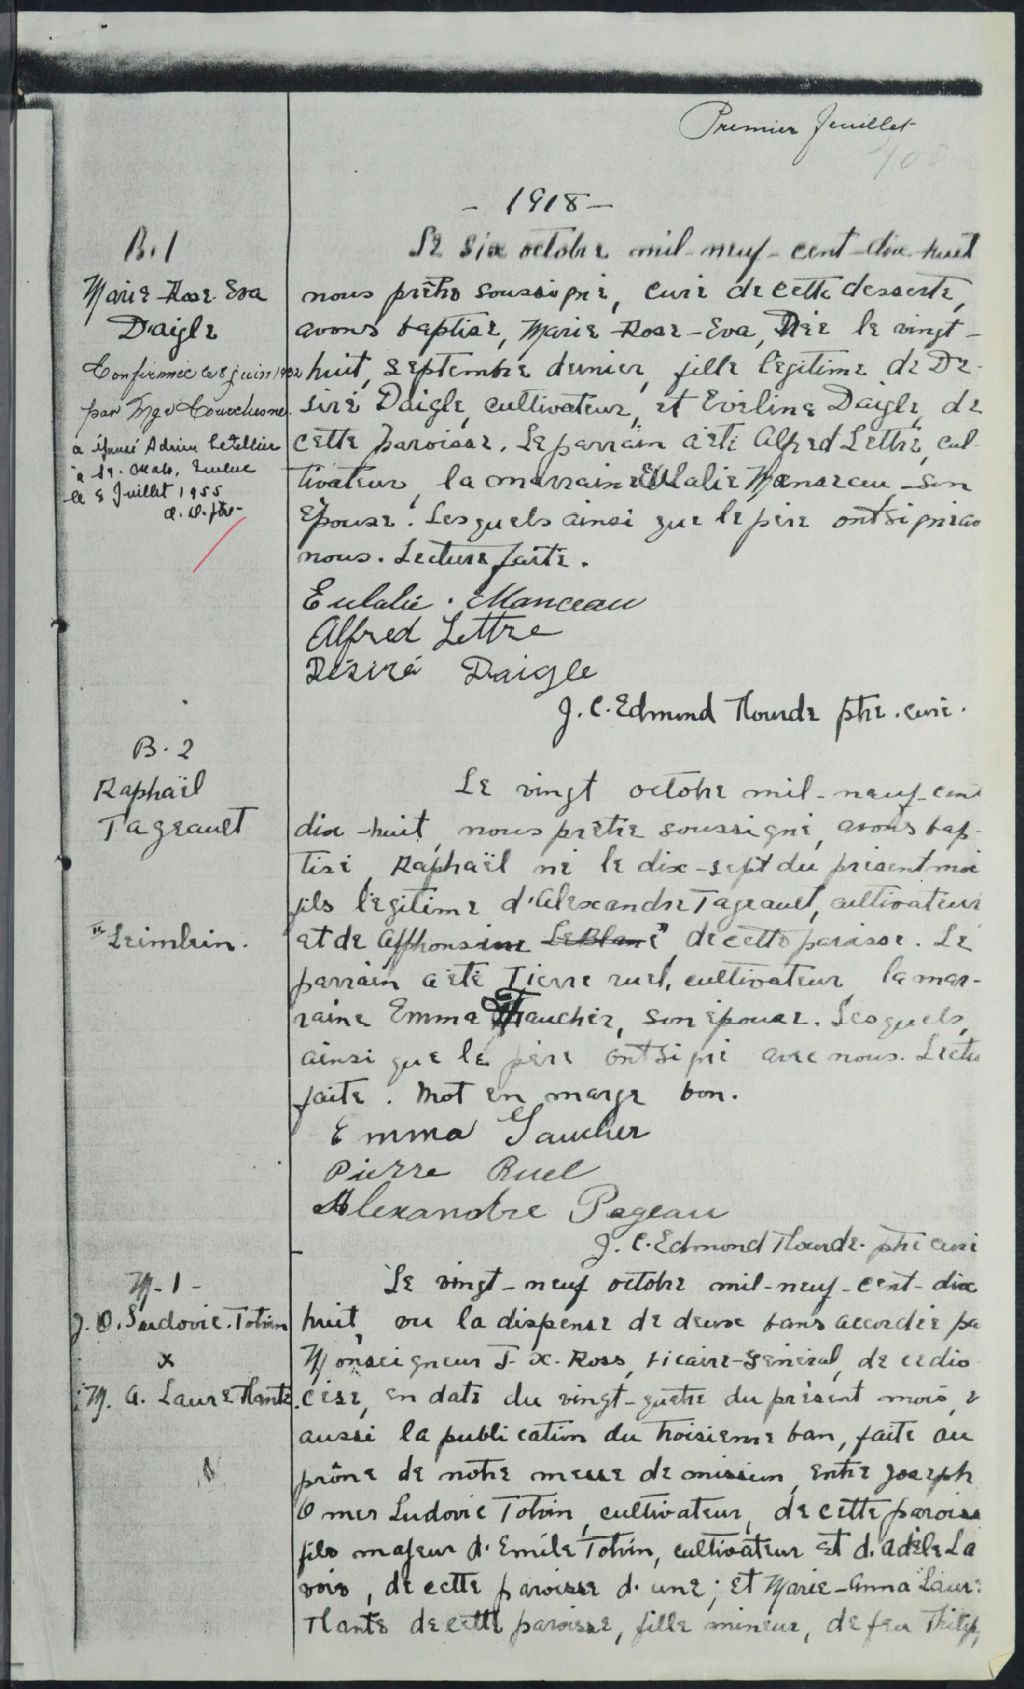 Premier feuillet
- 1918 -
B.1
Marie-Rose-Eva
Daigle
Confirmée le 8 juin 1932
par Mgr Courchesne.
a épousé Adrien Letellier
à St. Malo, Québec
le 2 Juillet 1955
Le six octobre mil-neuf-cent-dix-huit
nous prêtre soussigné, curé de cette desserte,
avons baptisé, Marie-Rose-Eva, Née le vingt-
huit, septembre dernier, fille légitime de Dé-
siré Daigle, cultivateur, et Eveline Daigle, de
cette paroisse. Le parrain a été Alfred Lettre, cul-
tivateur, la marraine Eulalie Manseau son
épouse. Lesquels ainsi que le père ont signé av
nous. Lecture faite.
Eulalie. Manceau
Alfred Lettre
Désiré Daigle
J. C. Edmond Plourde ptre. curé.
B. 2
Raphaël
Pageault
Le vingt octobre mil-neuf-cent
dix-huit, nous prêtre soussigné, avons bap-
tisé, Raphaël né le dix-sept du présent moi
fils légitime d'Alexandre Pageault, cultivateur
et de Alphonsine LeBlanc, de cette paroisse. Le
parrain a été Pierre ruel, cultivateur, la mar-
raine Emma Faucher, son épouse. Lesquels,
ainsi que le père ont signé avec nous. Lectu
faite. Mot en marge bon.
Emma Faucher
Pierre Ruel
Alexandre Pageau
J. C. Edmond Plourde. ptre curé
M-1-
J. O. Ludovic. Potvin
x
M. A. Laure Plante.
Le vingt-neuf octobre mil-neuf-cent-dix
huit, vu la dispense de deux bans accordée pa
Monseigneur F-X-Ross, vicaire-général, de ce dio
cèse, en date du vingt-quatre du présent mois, e
aussi la publication du troisième ban, faite au
prône de notre messe de mission, entre Joseph
Omer Ludovic Potvin, cultivateur, de cette paroiss
fils majeur d'Emile Potvin, cultivateur et d'Adèle La
voie, de cette paroisse d'une; et Marie-Anna Laure
Plante de cette paroisse, fille mineur, de feu Philip